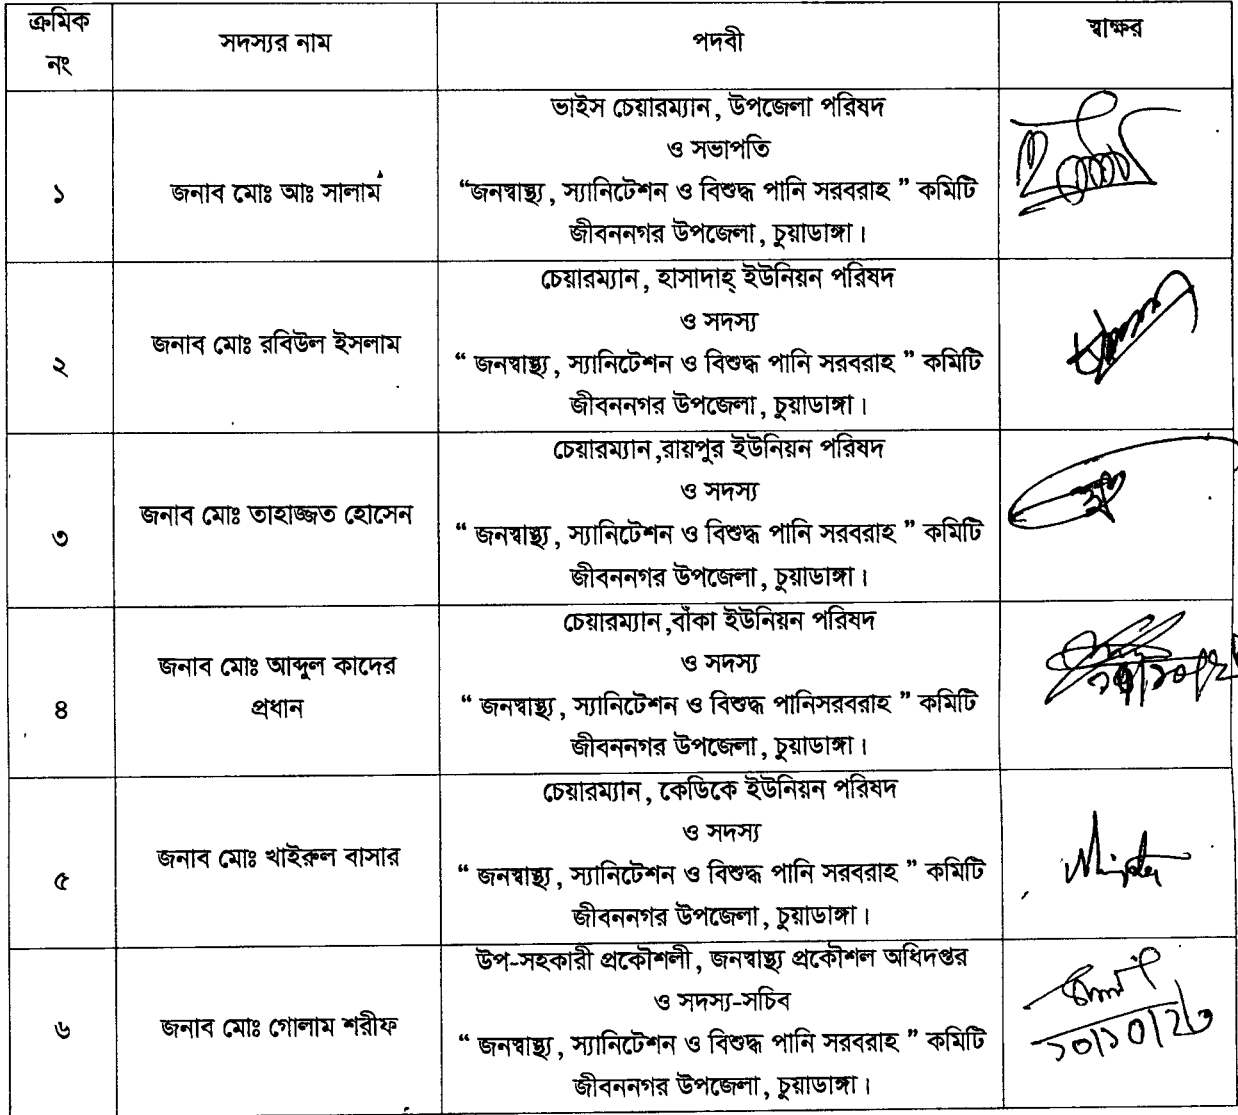 ক্রমিক
নং
সদস্যর নাম
পদবী
স্বাক্ষর
১
জনাব মোঃ আঃ সালাম
ভাইস চেয়ারম্যান, উপজেলা পরিষদ
ও সভাপতি
“জনস্বাস্থ্য, স্যানিটেশন ও বিশুদ্ধ পানি সরবরাহ ” কমিটি
জীবননগর উপজেলা, চুয়াডাঙ্গা।
২
জনাব মোঃ রবিউল ইসলাম
চেয়ারম্যান, হাসাদাহ্ ইউনিয়ন পরিষদ
ও সদস্য
“ জনস্বাস্থ্য, স্যানিটেশন ও বিশুদ্ধ পানি সরবরাহ ” কমিটি
জীবননগর উপজেলা, চুয়াডাঙ্গা।
৩
জনাব মোঃ তাহাজ্জত হোসেন
চেয়ারম্যান,রায়পুর ইউনিয়ন পরিষদ
ও সদস্য
“ জনস্বাস্থ্য, স্যানিটেশন ও বিশুদ্ধ পানি সরবরাহ ” কমিটি
জীবননগর উপজেলা, চুয়াডাঙ্গা।
৪
জনাব মোঃ আব্দুল কাদের
প্রধান
চেয়ারম্যান,বাঁকা ইউনিয়ন পরিষদ
ও সদস্য
“ জনস্বাস্থ্য, স্যানিটেশন ও বিশুদ্ধ পানিসরবরাহ ” কমিটি
জীবননগর উপজেলা, চুয়াডাঙ্গা।
৫
জনাব মোঃ খাইরুল বাসার
চেয়ারম্যান, কেডিকে ইউনিয়ন পরিষদ
ও সদস্য
“ জনস্বাস্থ্য, স্যানিটেশন ও বিশুদ্ধ পানি সরবরাহ ” কমিটি
জীবননগর উপজেলা, চুয়াডাঙ্গা।
৬
জনাব মোঃ গোলাম শরীফ
উপ-সহকারী প্রকৌশলী, জনস্বাস্থ্য প্রকৌশল অধিদপ্তর
ও সদস্য-সচিব
“ জনস্বাস্থ্য, স্যানিটেশন ও বিশুদ্ধ পানি সরবরাহ ” কমিটি
জীবননগর উপজেলা, চুয়াডাঙ্গা।